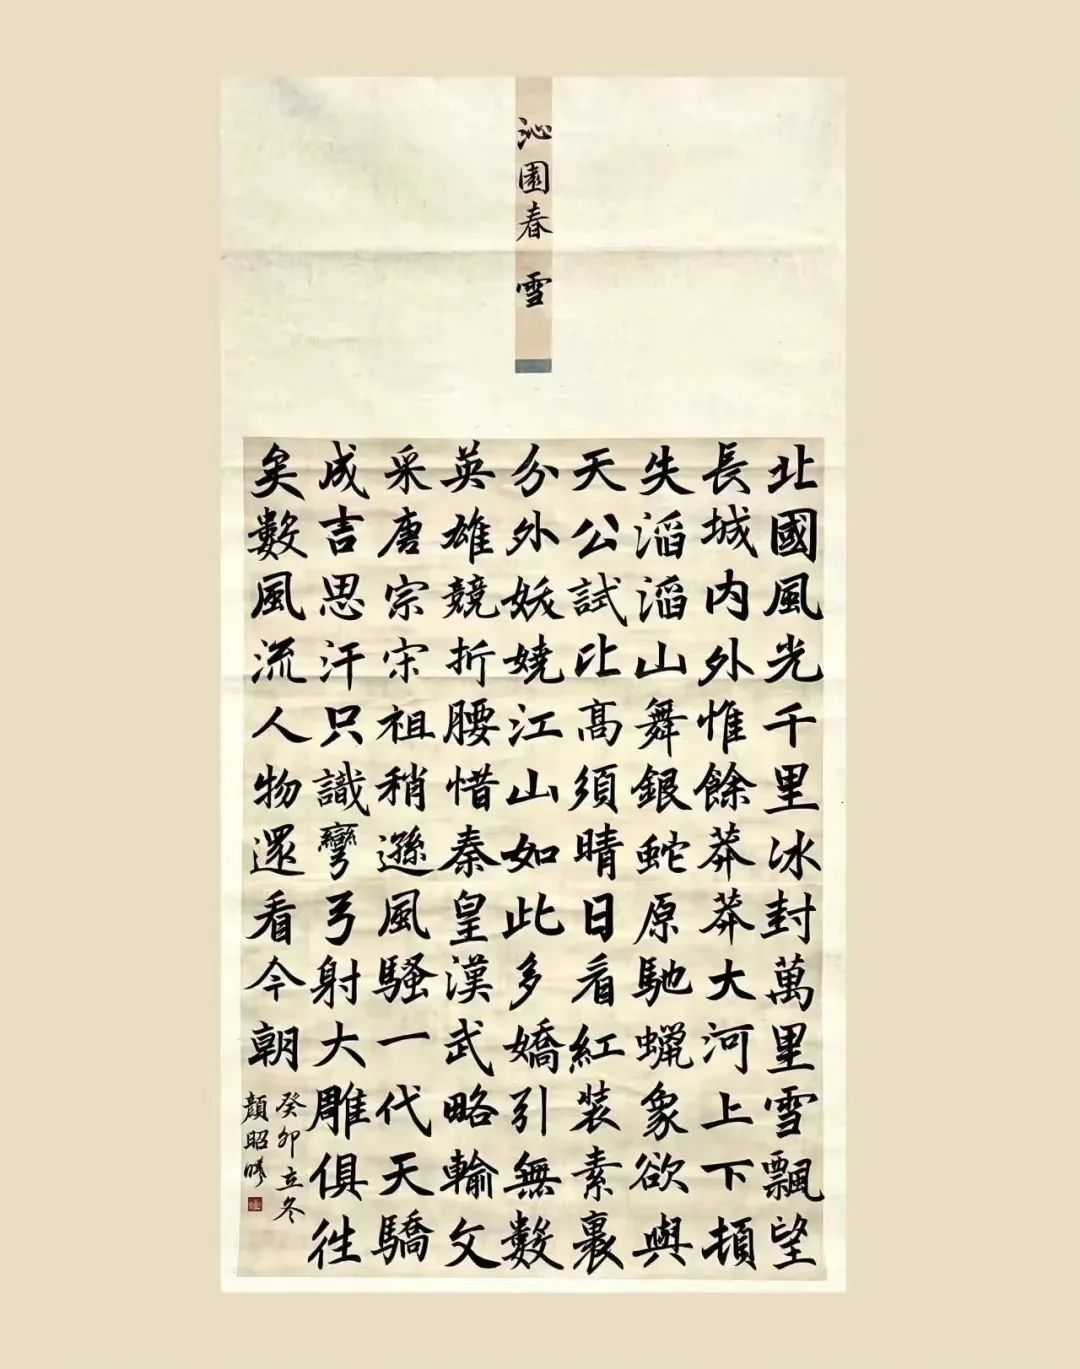 沁園春 雪
北國風光千里冰封萬里雪飄望
長城内外惟餘莽莽大河上下頓
失滔滔山舞銀蛇原馳蠟象欲與
天公試比高須晴日看紅裝素裹
分外妖嬈江山如此多嬌引無數
英雄競折腰惜秦皇漢武略輸文
采唐宗宋祖稍遜風騷一代天驕
成吉思汗只識彎弓射大雕俱往
矣數風流人物還看今朝
癸卯立冬
顏昭